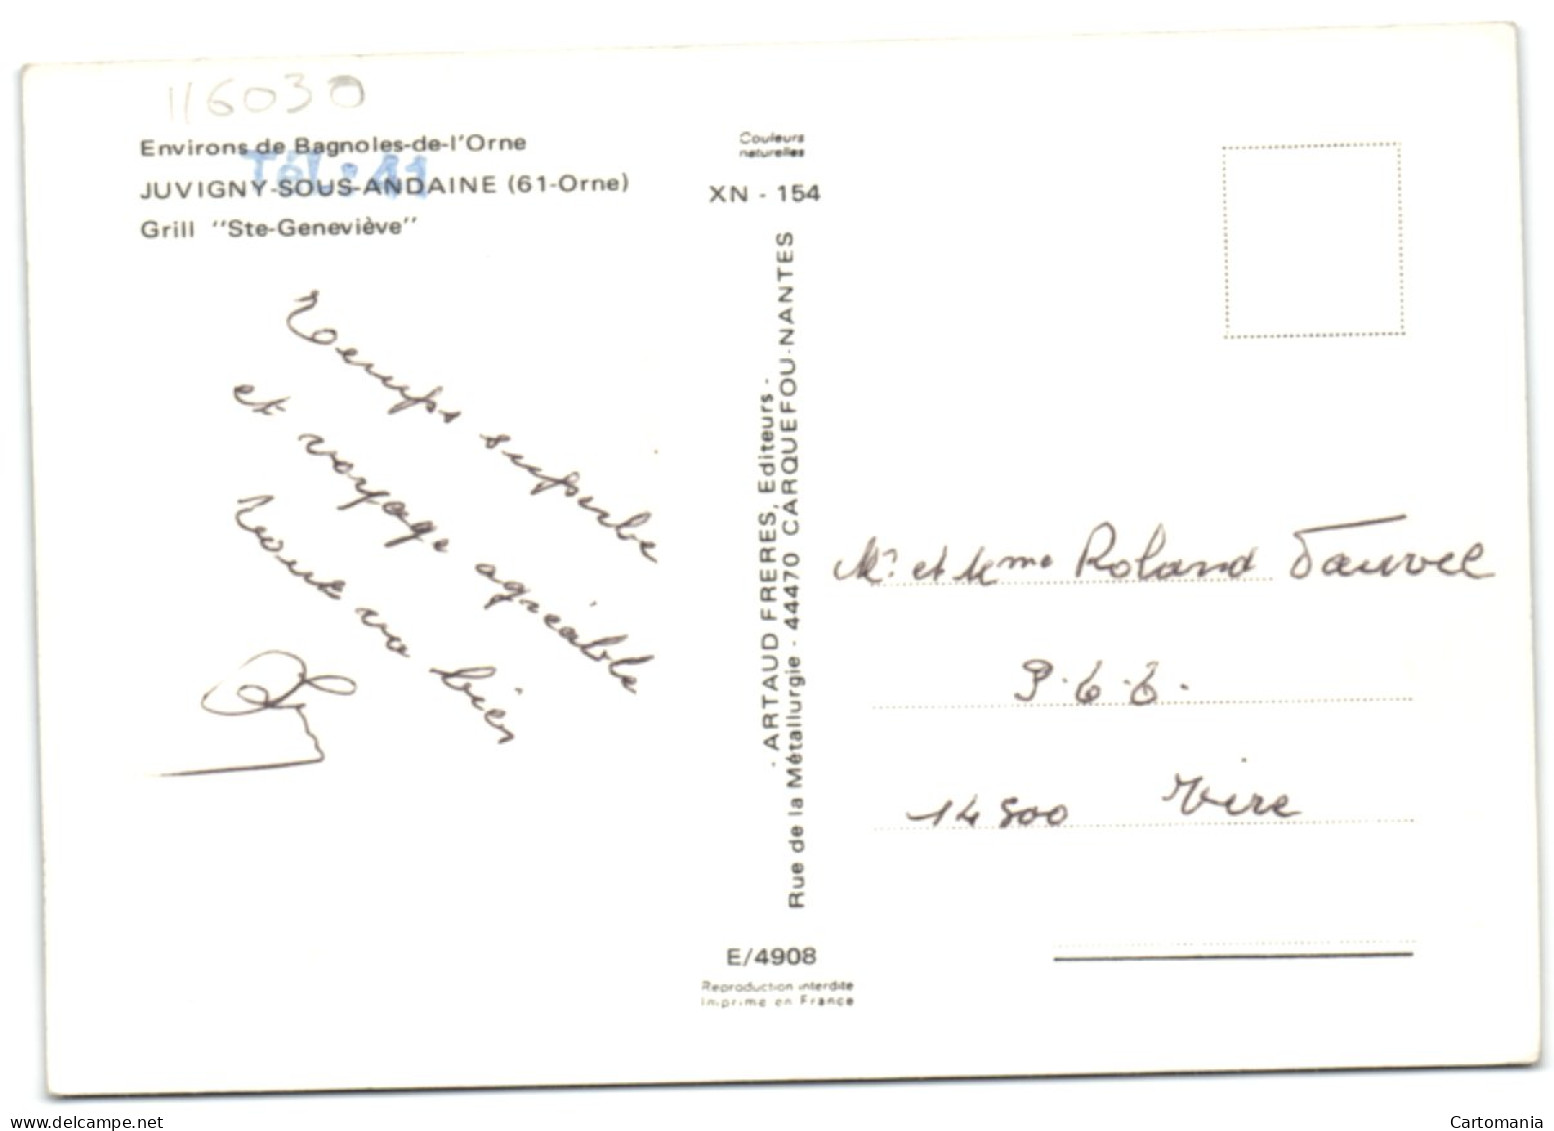 116030
Environs de Bagnoles-de-l'Orne
Tél: 11
JUVIGNY-SOUS-ANDAINE (61-Orne)
Grill "Ste-Geneviève"
Temps superbe
et voyage agréable
Tout va bien
Couleurs
naturelles
XN - 154
- ARTAUD FRERES, Editeurs -
Rue de la Métallurgie - 44470 CARQUEFOU-NANTES
E/4908
Reproduction interdite
Imprimé en France
Mr et Mme Roland Fauvel
14500 Vire
www.delcampe.net
Cartomania